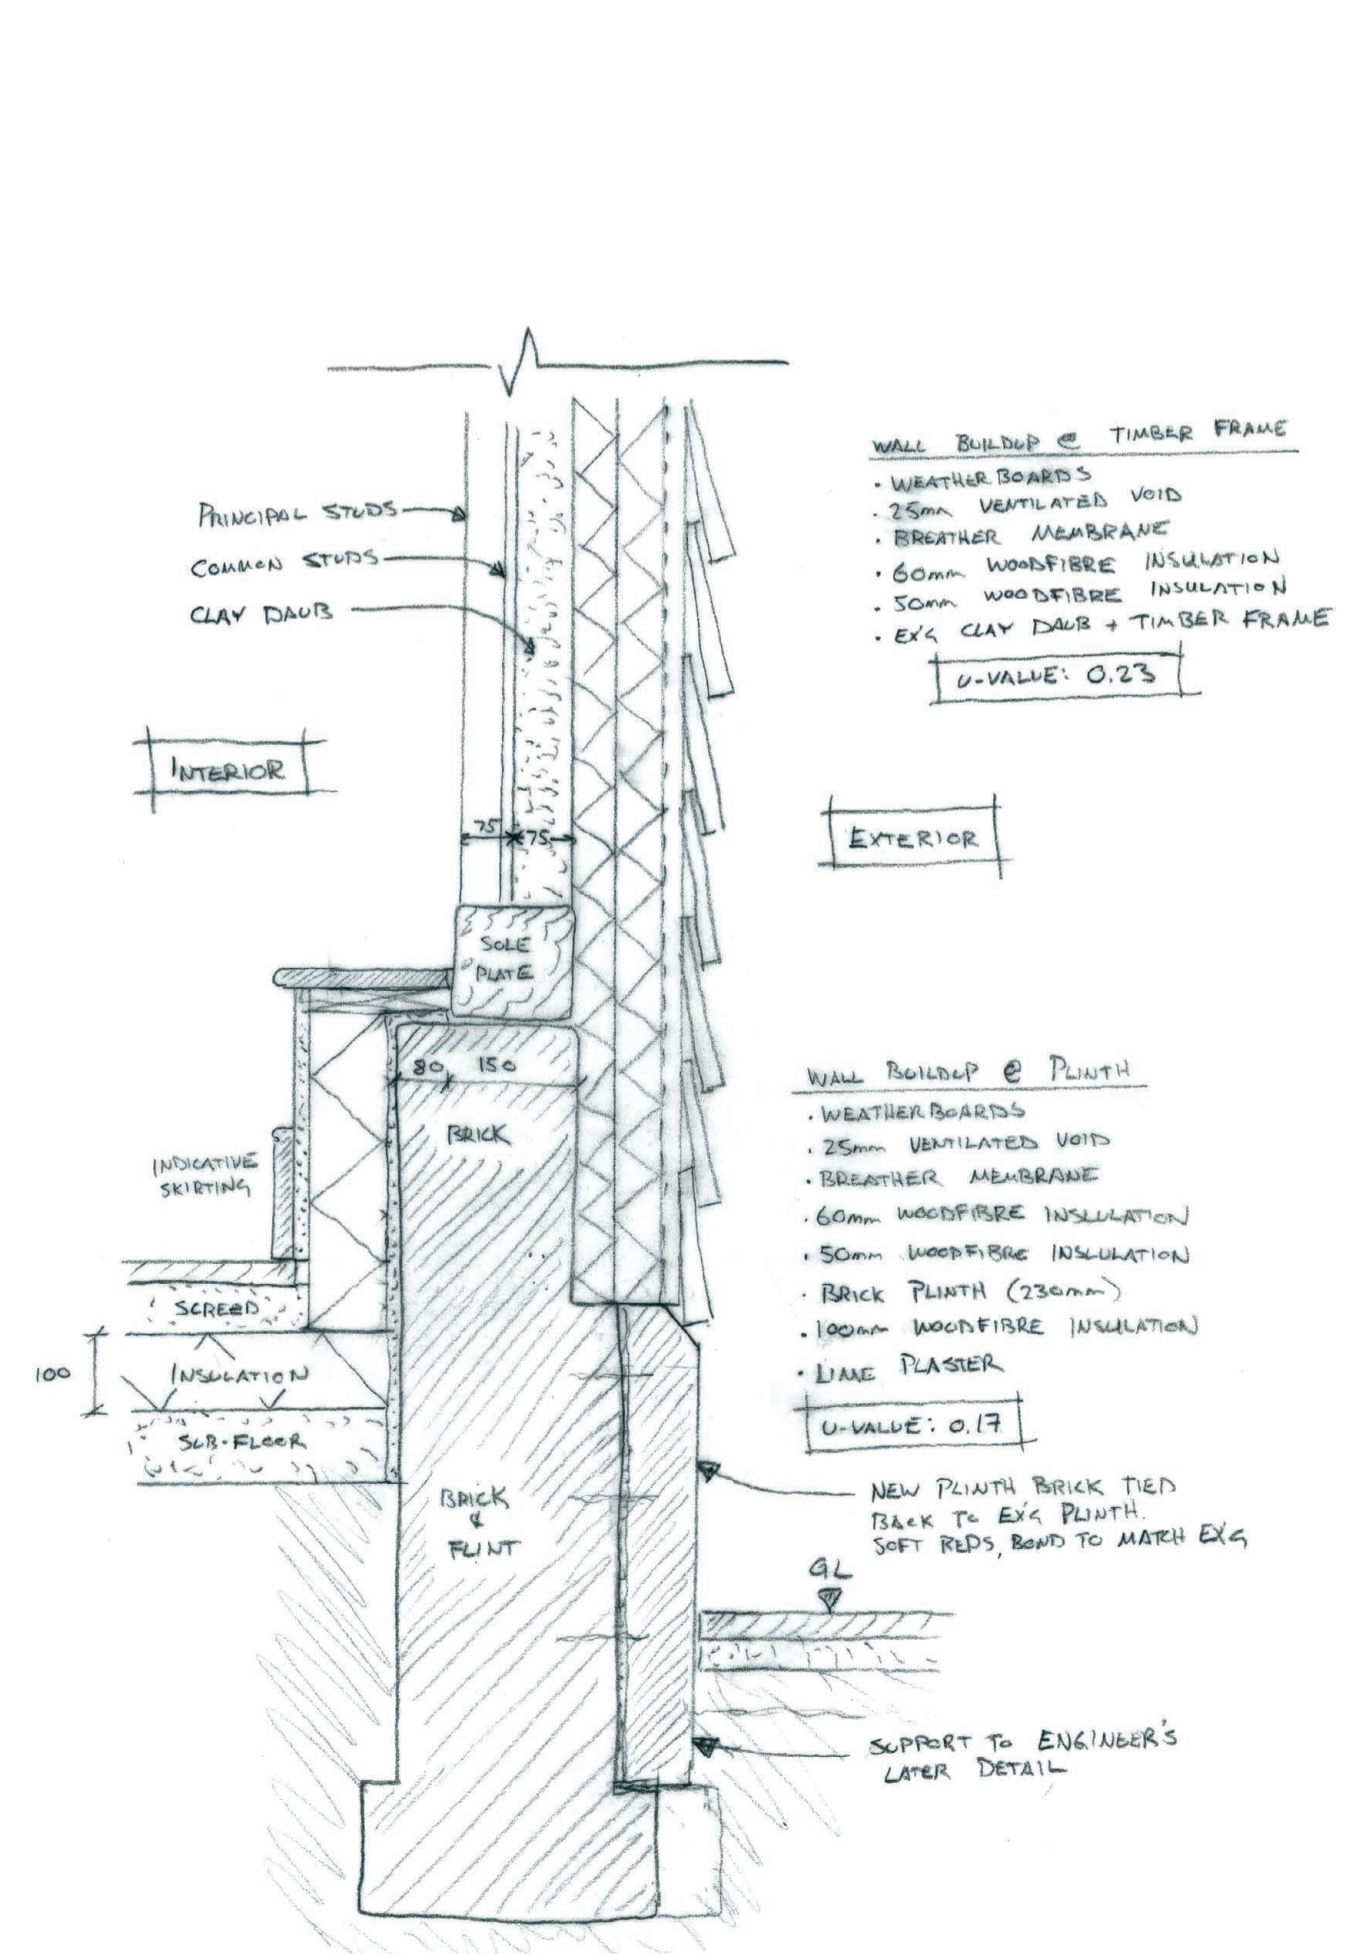 WALL BUILDUP @ TIMBER FRAME
• WEATHERBOARDS
• 25mm VENTILATED VOID
• BREATHER MEMBRANE
• 60mm WOODFIBRE INSULATION
• 50mm WOODFIBRE INSULATION
• EX'G CLAY DAUB + TIMBER FRAME
U-VALUE: 0.23
PRINCIPAL STUDS
COMMON STUDS
CLAY DAUB
INTERIOR
EXTERIOR
75 75
SOLE
PLATE
80 150
BRICK
INDICATIVE
SKIRTING
SCREED
100
INSULATION
SUB-FLOOR
BRICK
&
FLINT
WALL BUILDUP @ PLINTH
• WEATHERBOARDS
• 25mm VENTILATED VOID
• BREATHER MEMBRANE
• 60mm WOODFIBRE INSLULATION
• 50mm WOODFIBRE INSLULATION
• BRICK PLINTH (230mm)
• 100mm WOODFIBRE INSULATION
• LIME PLASTER
U-VALUE: 0.17
NEW PLINTH BRICK TIED
BACK TO EX'G PLINTH.
SOFT REDS, BOND TO MATCH EX'G
GL
SUPPORT TO ENGINEER'S
LATER DETAIL